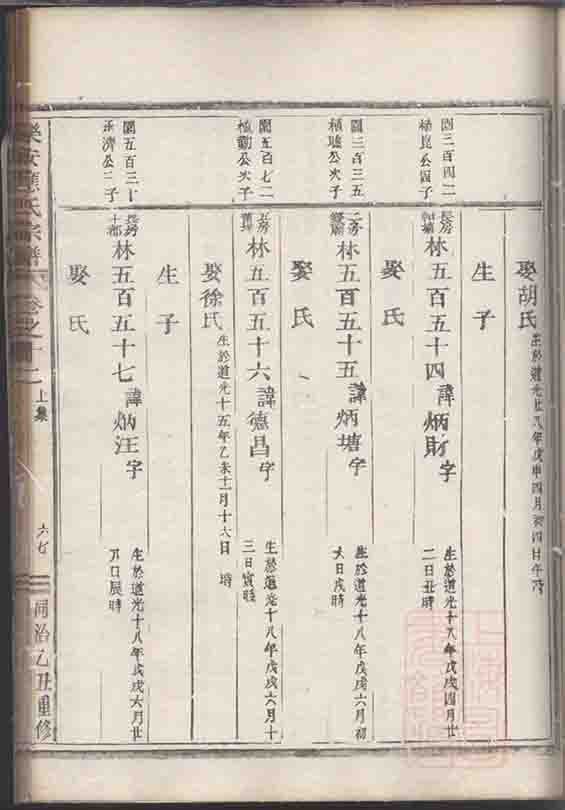 娶胡氏 生於道光廿八年戊申四月初四日午時
生子
園三百四二
植崑公四子
長房
林五百五十四 諱炳財 字 生於道光十八年戊戌四月廿二日丑時
娶 氏
園三百三五
植墟公次子
二房
林五百五十五 諱炳塘 字 生於道光十八年戊戌六月初六日戌時
娶 氏
園五百七二
植勳公次子
林五百五十六 諱德昌 字 生於道光十八年戊戌六月十三日寅時
娶徐氏 生於道光十五年乙未十一月十六日 時
生子
園五百三十
丞濟公二子
長房
十都
林五百五十七 諱炳汪 字 生於道光十八年戊戌六月廿九日辰時
娶 氏
樂安應氏宗譜 卷之 十二 上集 六七 同治乙丑重修